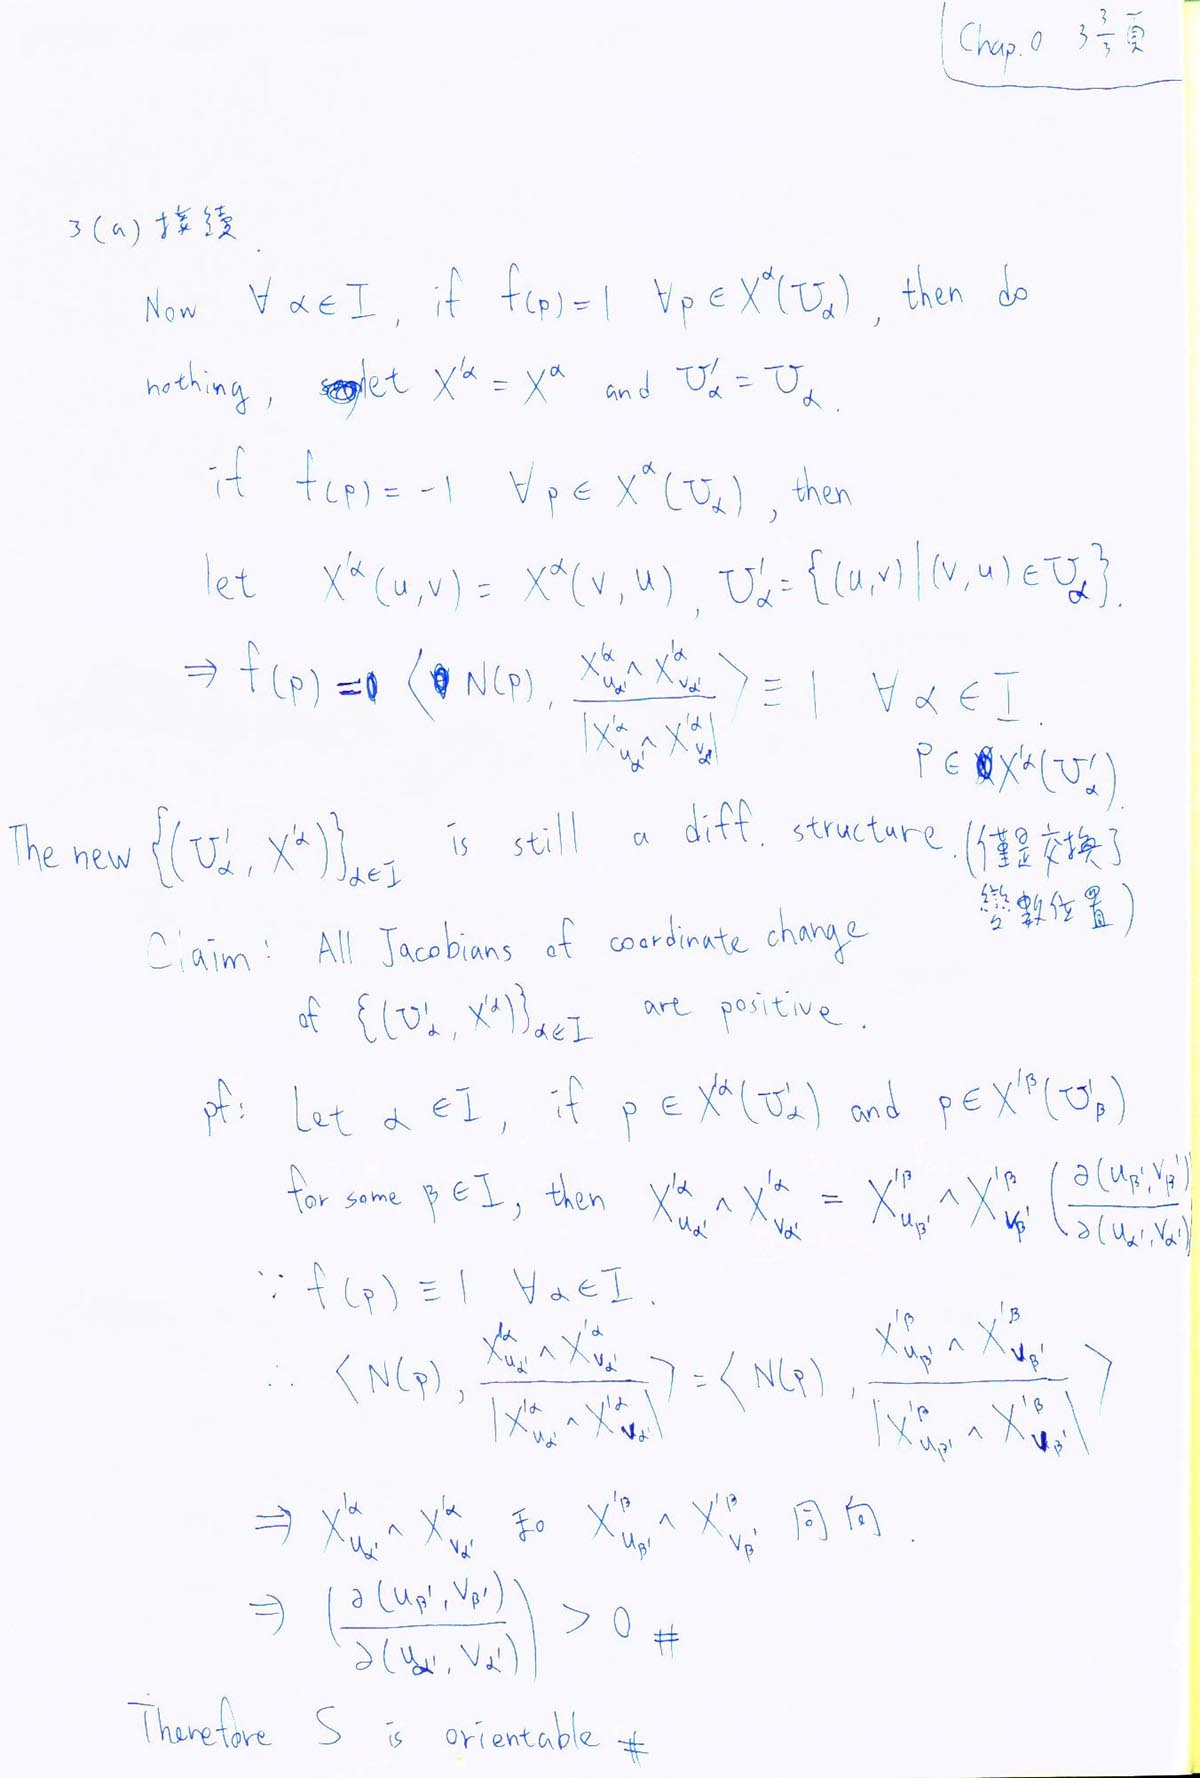 Chap.0 3 3/3 頁
3(a) 接續.
Now ∀ α∈I, if f(p)=1 ∀p∈X^α(U_α), then do
nothing, let X'^α = X^α and U'_α = U_α.
if f(p)=-1 ∀p∈X^α(U_α), then
let X'^α(u,v) = X^α(v,u), U'_α={(u,v)|(v,u)∈U_α}.
⇒ f(p) = ⟨N(p), (X'^α_{u_α'} ∧ X'^α_{v_α'})/|X'^α_{u_α'} ∧ X'^α_{v_α'}|⟩ ≡ 1 ∀ α ∈ I.
p∈X'^α(U'_α).
The new {(U'_α, X'^α)}_{α∈I} is still a diff. structure. (僅是交換了
變數位置)
Claim: All Jacobians of coordinate change
of {(U'_α, X'^α)}_{α∈I} are positive.
pf: Let α ∈I, if p ∈ X'^α(U'_α) and p∈X'^β(U'_β)
for some β∈I, then X'^α_{u_α'} ∧ X'^α_{v_α'} = X'^β_{u_β'} ∧ X'^β_{v_β'} (∂(u_β',v_β')/∂(u_α',v_α')
∵ f(p) ≡ 1 ∀α∈I.
∴ ⟨N(p), (X'^α_{u_α'} ∧ X'^α_{v_α'})/|X'^α_{u_α'} ∧ X'^α_{v_α'}|⟩ = ⟨N(p), (X'^β_{u_β'} ∧ X'^β_{v_β'})/|X'^β_{u_β'} ∧ X'^β_{v_β'}|⟩
⇒ X'^α_{u_α'} ∧ X'^α_{v_α'} 和 X'^β_{u_β'} ∧ X'^β_{v_β'} 同向.
⇒ (∂(u_β',v_β')/∂(u_α',v_α')) > 0 #
Therefore S is orientable #